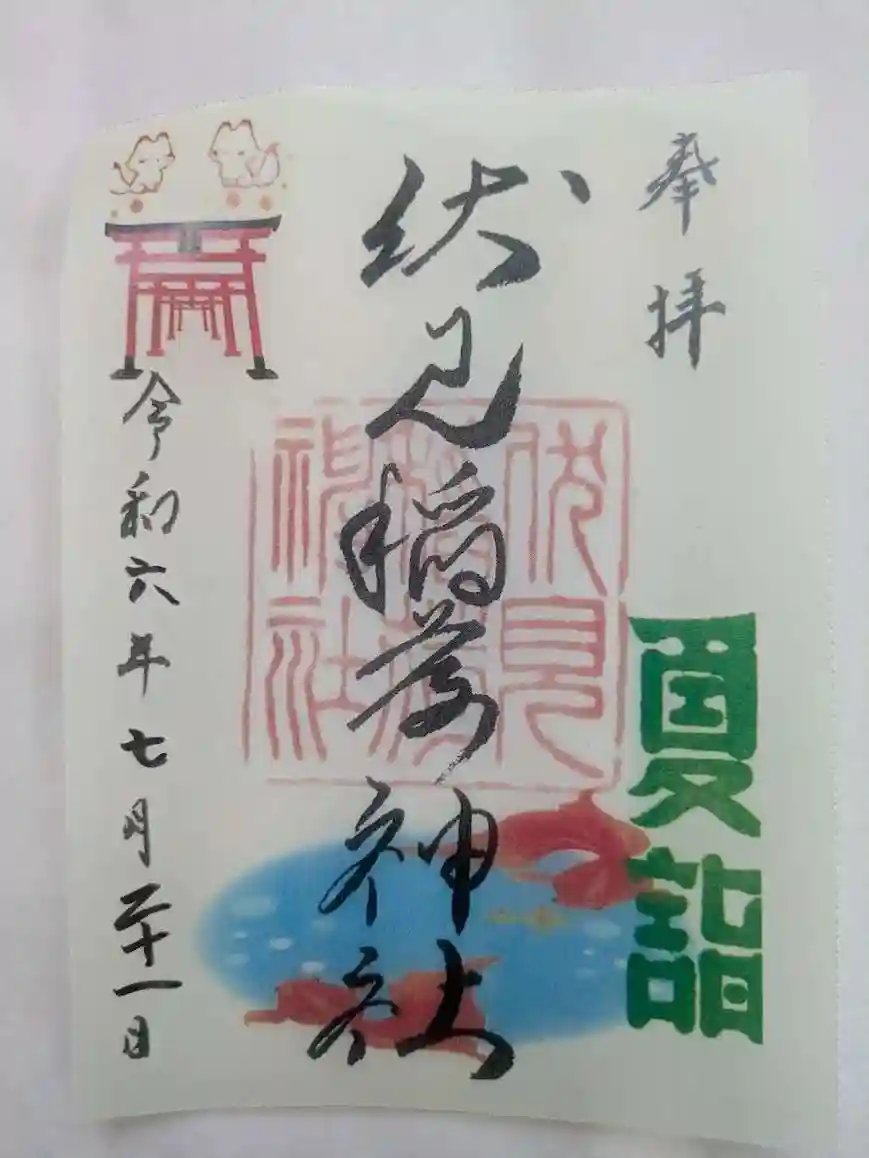 奉拝
夏詣
伏見稲荷神社
伏見稲荷神社
令和六年七月二十一日